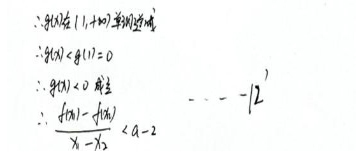 ∴g(x)在(1,+∞)单调递减
∴g(x)<g(1)=0
∴g(x)<0 成立
∴ \frac{f(x_1)-f(x_2)}{x_1-x_2} < a-2 ---- 12'